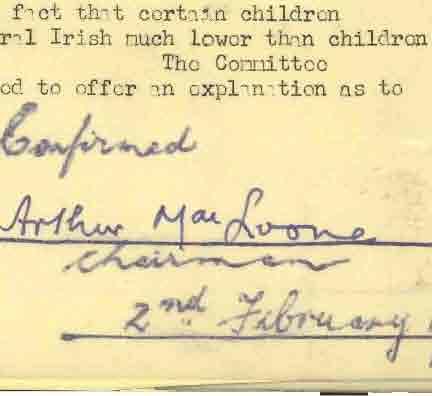 fact that certain children
ral Irish much lower than children
The Committee
ed to offer an explanation as to
Confirmed
Arthur Mac Loone
Chairman
2nd February